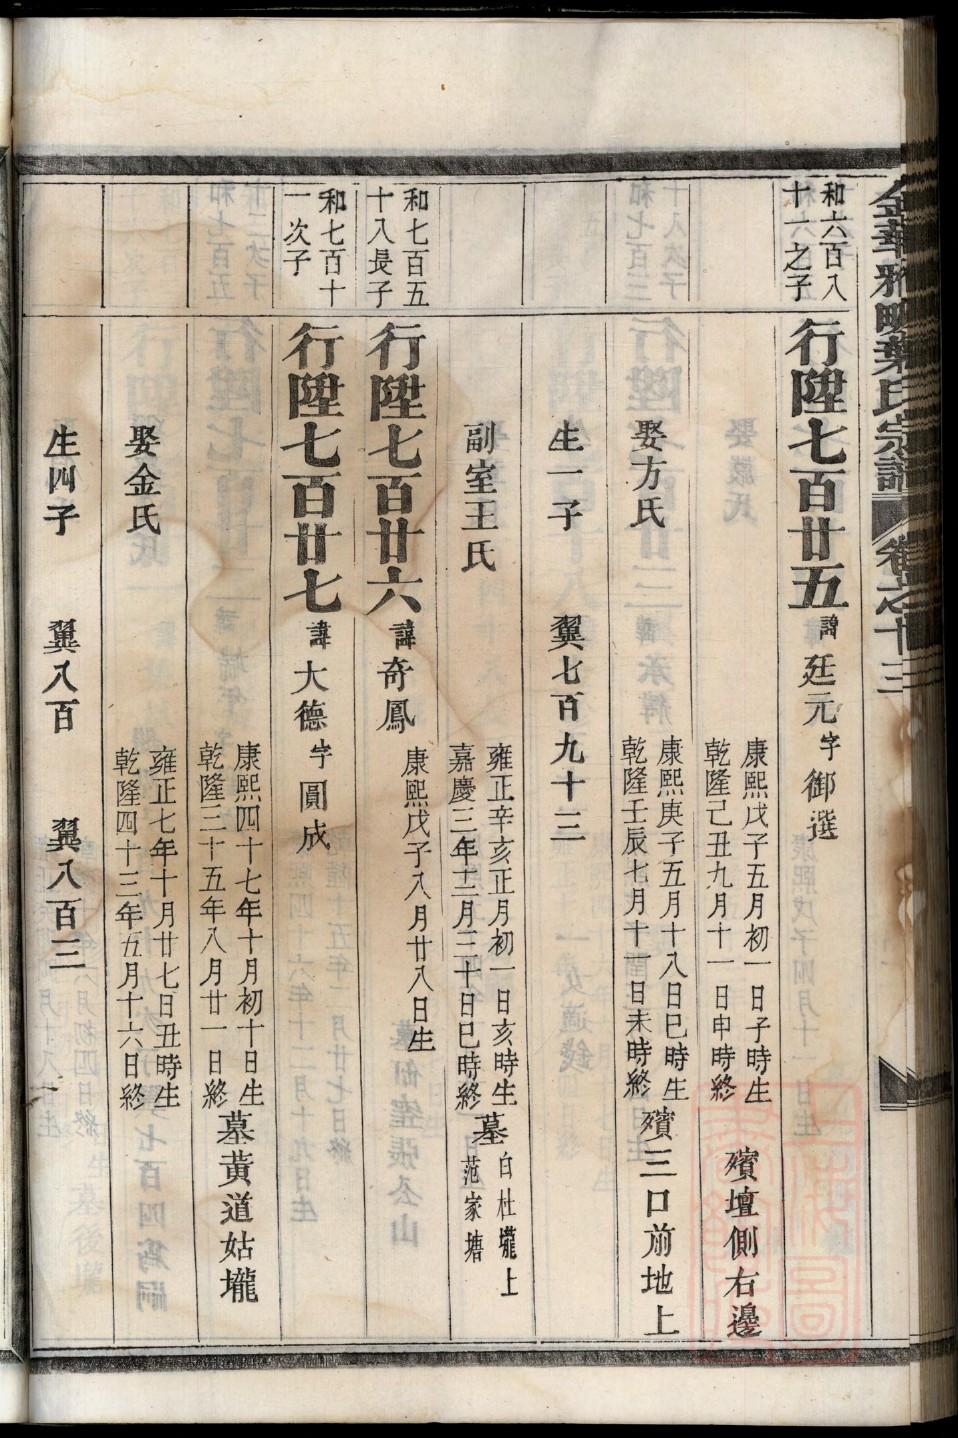 金華雅畈葉氏宗譜 卷之十三
和六百八
十一之子
行陞七百廿五 諱廷元 字御選
康熙戊子五月初一日子時生
乾隆己丑九月十一日申時終
殯壇側右邊
娶方氏
康熙庚子五月十八日巳時生
乾隆壬辰七月十一日未時終
殯三口前地上
生一子 翼七百九十三
副室王氏
雍正辛亥正月初一日亥時生
嘉慶三年十二月三十日巳時終
墓白杜壠上
范家塘
和七百五
十八長子
行陞七百廿六 諱奇鳳
康熙戊子八月廿八日生
和七百十
一次子
行陞七百廿七 諱大德 字圓成
康熙四十七年十月初十日生
乾隆三十五年八月廿一日終
墓黃道姑壠
娶金氏
雍正七年十月廿七日丑時生
乾隆四十三年五月十六日終
生四子 翼八百 翼八百三